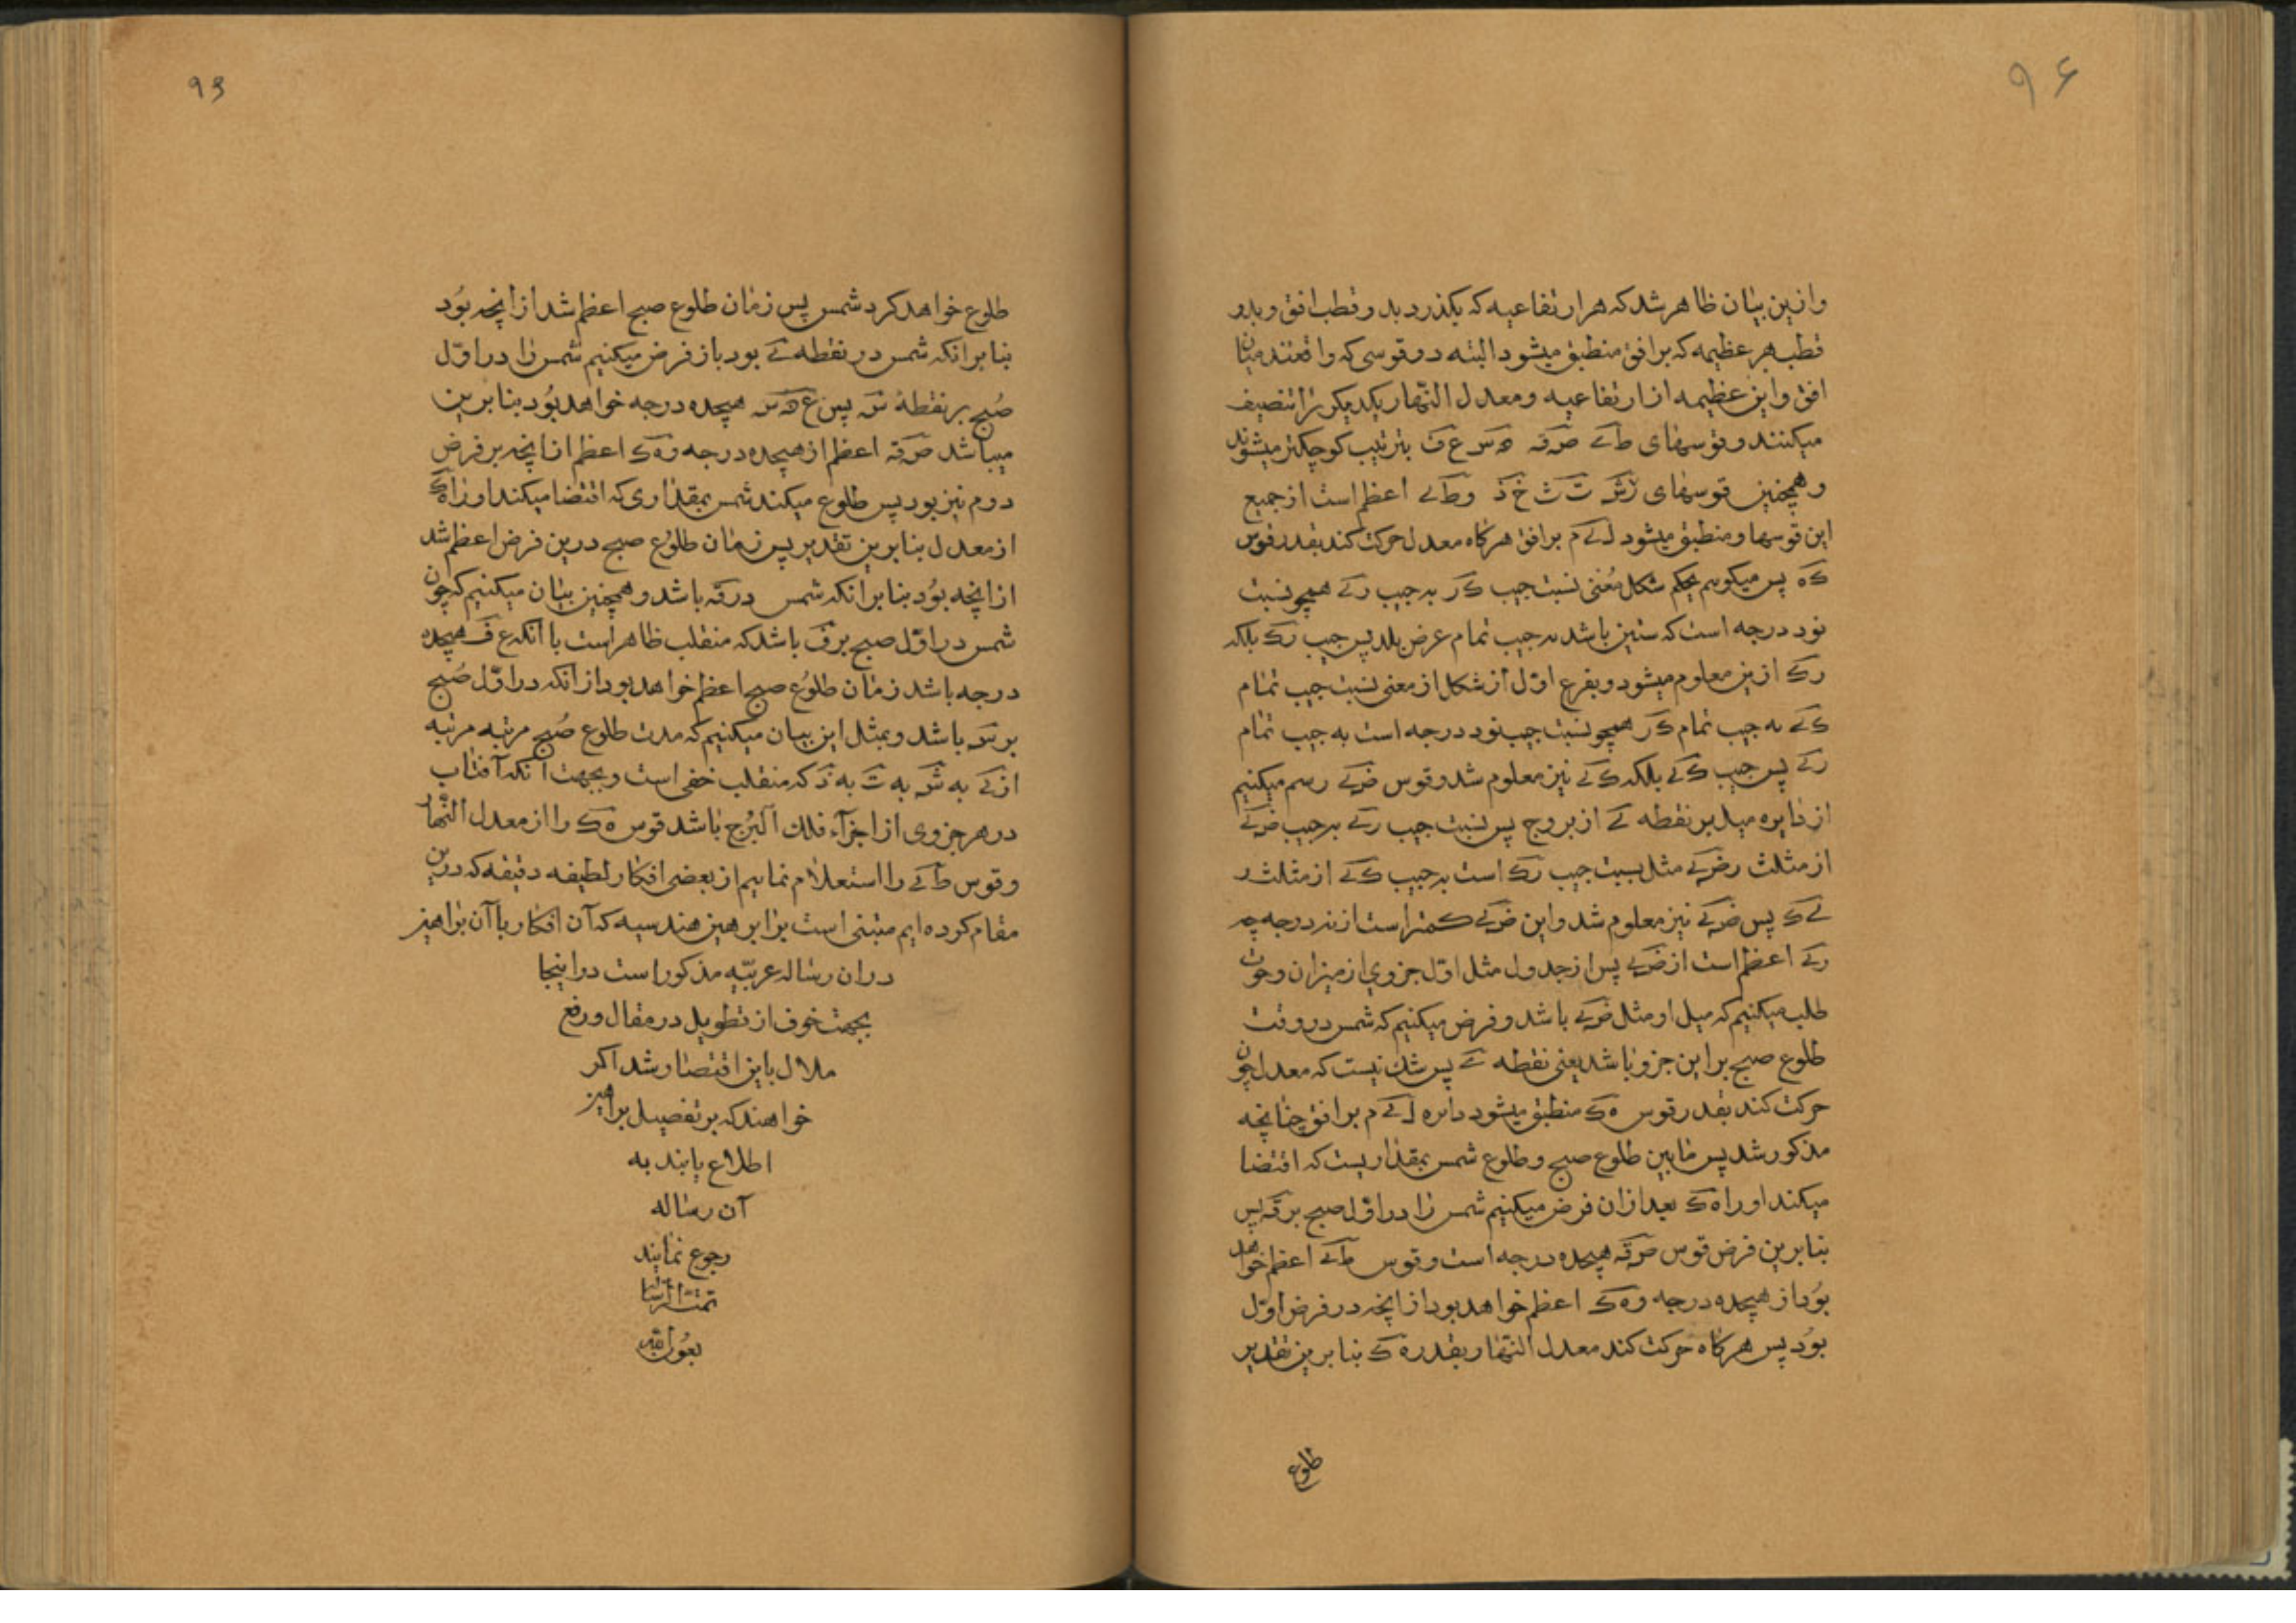 ۹۶
وازین بیان ظاهر شد که هر ارتفاعیه که بکذرد بد و قطب افق و بدو
قطب هر عظیمه که بر افق منطبق میشود البته دو قوسی که واقعند میان
افق و این عظیمه از ارتفاعیه و معدل النهار یکدیکر را تنصیف
میکنند و قوسهای طے صرقہ ه س ع ف بترتیب کوچکتر میشوند
و همچنین قوسهای ت ث خ ذ و طے اعظم است از جمیع
این قوسها و منطبق میشود لے م بر افق هرکاه معدل حرکت کند بقدر قوس
ک ه پس میکویم بحکم شکل مغنی نسبت جیب ک ر به جیب رے همچو نسبت
نود درجه است که ستین باشد به جیب تمام عرض بلد پس جیب رک بلکه
رک ازین معلوم میشود و بفرع اوّل از شکل از مغنی نسبت جیب تمام
کے به جیب تمام ک ر همچو نسبت جیب نود درجه است به جیب تمام
رے پس جیب کے بلکه کے نیز معلوم شد و قوس ضے رسم میکنیم
از دایره میل بر نقطه ے از بروج پس نسبت جیب رے به جیب ضے
از مثلث رضے مثل نسبت جیب رک است به جیب کے از مثلث ر
ے ک پس ضے نیز معلوم شد و این ضے کمتر است از درجه چه
رے اعظم است از ضے پس از جدول مثل اوّل جزوی از میزان و حوت
طلب میکنیم که میل او مثل ضے باشد و فرض میکنیم که شمس در وقت
طلوع صبح بر این جزو باشد یعنی نقطه ے پس شک نیست که معدل چون
حرکت کند بقدر قوس ه ک منطبق میشود دایره لے م بر افق چنانچه
مذکور شد پس مابین طلوع صبح و طلوع شمس بمقداریست که اقتضا
میکند او را ه ک بعد از ان فرض میکنیم شمس را در اوّل صبح بر قہ پس
بنابرین فرض قوس صرقہ هیجده درجه است و قوس طے اعظم خواهد
بود از هیجده درجه و ه ک اعظم خواهد بود از انچه در فرض اوّل
بود پس هرکاه حرکت کند معدل النهار بقدر ه ک بنابرین تقدیر
طلوع
۹۳
طلوع خواهد کرد شمس پس زمان طلوع صبح اعظم شد از انچه بود
بنابر انکه شمس در نقطه ے بود باز فرض میکنیم شمس را در اوّل
صبح بر نقطهٔ س پس ع ه س هیجده درجه خواهد بود بنابرین
میباشد صرقہ اعظم از هیجده درجه و ه ک اعظم از انچه بر فرض
دوم نیز بود پس طلوع میکند شمس بمقداری که اقتضا میکند او را ه ک
از معدل بنابرین تقدیر پس زمان طلوع صبح درین فرض اعظم شد
از انچه بود بنابر انکه شمس در قہ باشد و همچنین بیان میکنیم که چون
شمس در اوّل صبح بر ف باشد که منقلب ظاهر است با انکه ع ف هیجده
درجه باشد زمان طلوع صبح اعظم خواهد بود از انکه در اوّل صبح
بر س باشد و بمثل این بیان میکنیم که مدت طلوع صبح مرتبه مرتبه
از ے به ش به ت به ذ که منقلب خفی است و بجهت انکه آفتاب
در هر جزوی از اجزآء فلك البرُج باشد قوس ه ک را از معدل النّهار
و قوس طے را استعلام نماییم از بعضی افکار لطیفه دقیقه که درین
مقام کرده ایم مبتنی است بر ابرهین هندسیه که آن افکار با آن براهین
در ان رساله عربیّه مذکور است در اینجا
بجهت خوف از تطویل در مقال و رفع
ملال باین اقتصار شد اکر
خواهند که بر تفصیل براهین
اطلاع یابند به
آن رساله
رجوع نمایند
تمت الرساله
بعون الله